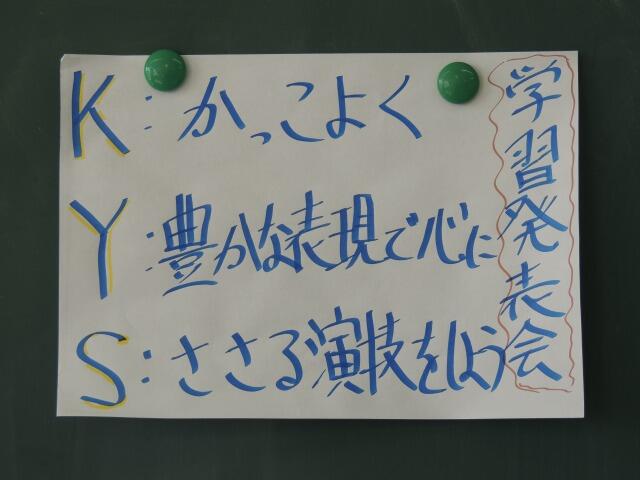 学習発表会
K:かっこよく
Y:豊かな表現で心に
S:ささる演技をしよう